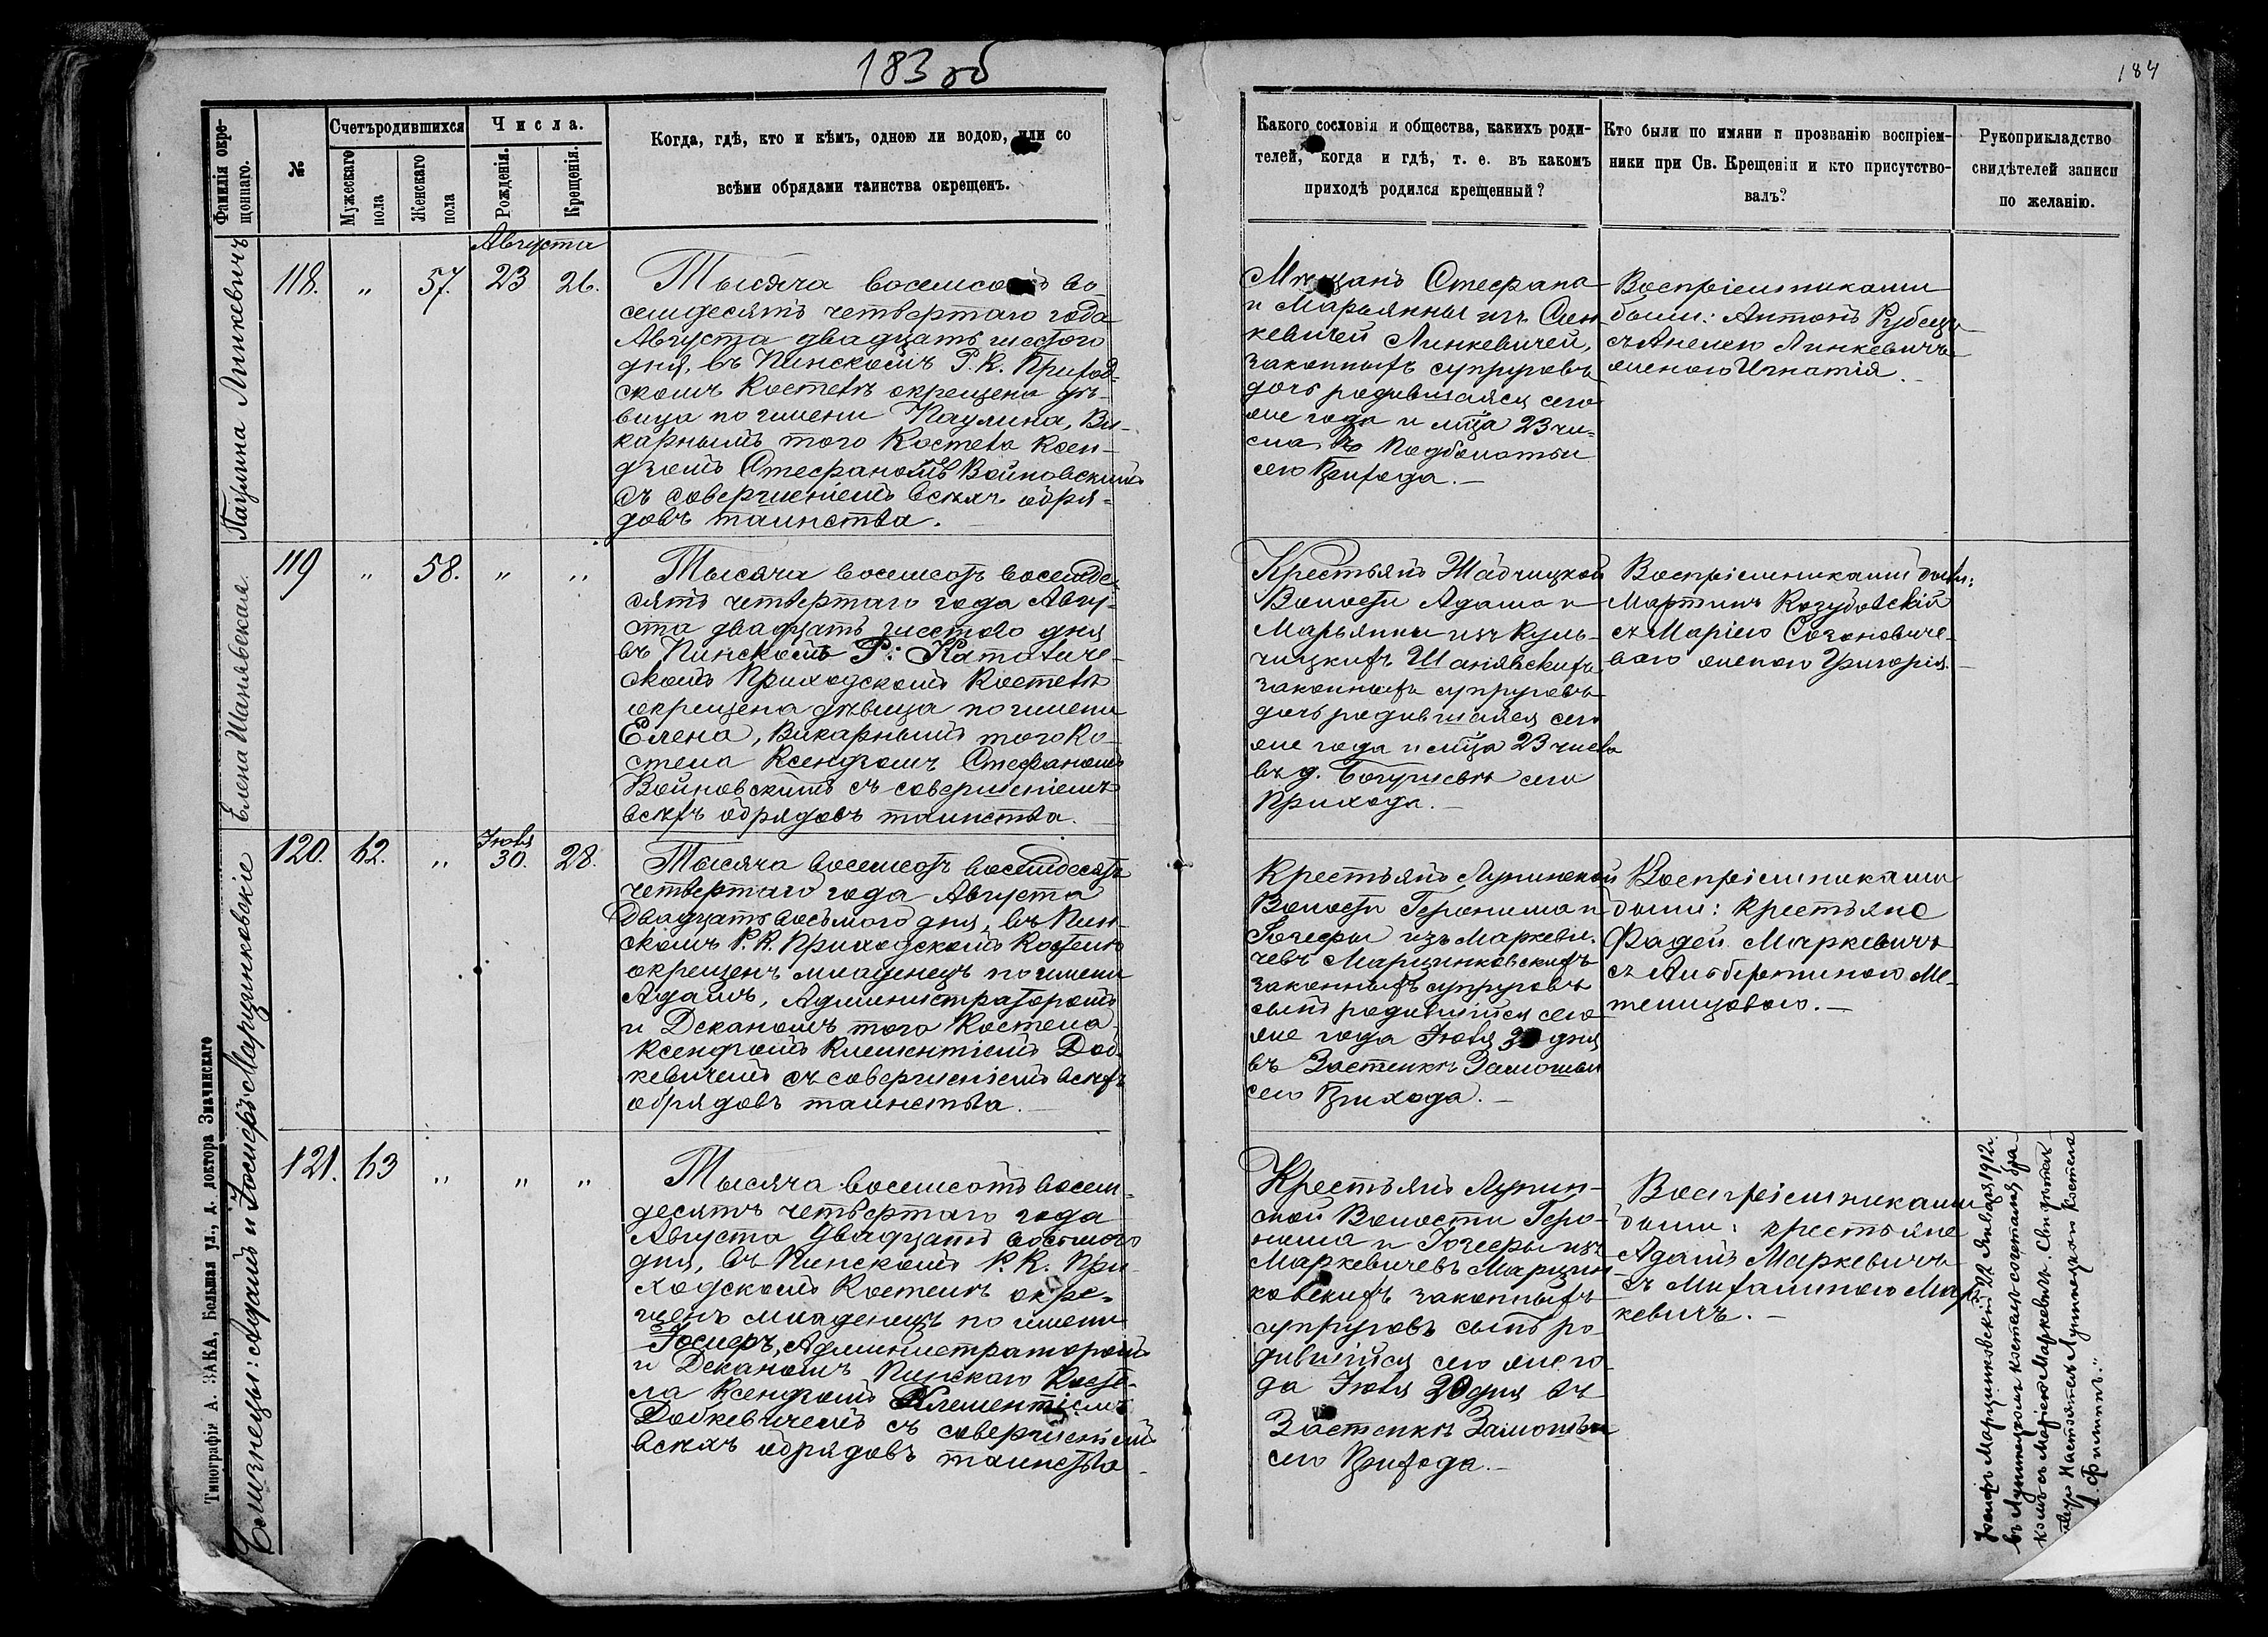 183 об
184
Фамилія окре-
щоннаго.
№
Счетъ родившихся
Мужескаго
пола
Женскаго
пола
Числа.
Рожденія.
Крещенія.
Когда, гдѣ, кто и кѣмъ, одною ли водою, или со
всѣми обрядами таинства окрещенъ.
Какого сословія и общества, какихъ роди-
телей, когда и гдѣ, т. е. въ какомъ
приходѣ родился крещенный?
Кто были по имяни и прозванію воспріем-
ники при Св. Крещеніи и кто присутство-
валъ?
Рукоприкладство
свидѣтелей записи
по желанію.
Паулина Линкевичъ
118. „ 57. Августа 23 26.
Тысяча восемсотъ во-
семдесятъ четвертаго года
Августа двадцать шестого
дня, въ Пинскомъ Р. К. Приход-
скомъ Костелѣ окрещена дѣ-
вица по имени Паулина, Ви-
карнымъ того Костела Ксен-
дзомъ Стефаномъ Войновскимъ
съ совершеніемъ всѣхъ обря-
довъ таинства.
Мѣщанъ Стефана
и Марьянны изъ Син-
кевичей Линкевичей,
законныхъ супруговъ
дочь родившаяся сего
же года и м-ца 23 чи-
сла, въ Подболотьи
сего Прихода.
Воспріемниками
были: Антонъ Рубецъ
съ Анелею Линкевичъ
женою Игнатія.
Елена Шанявская.
119 „ 58. „ „
Тысяча восемсотъ восемде-
сятъ четвертаго года Авгу-
ста двадцать шестого дня
въ Пинскомъ Р: Католиче-
скомъ Приходскомъ Костелѣ
окрещена дѣвица по имени
Елена, Викарнымъ того Ко-
стела Ксендзомъ Стефаномъ
Войновскимъ съ совершеніемъ
всѣхъ обрядовъ таинства.
Крестьянъ Жабчицкой
Волости Адама и
Марьянны изъ Куль-
чицкихъ Шанявскихъ
законныхъ супруговъ
дочь родившаяся сего
же года и м-ца 23 числа
въ д. Богушевѣ сего
Прихода.
Воспріемниками были:
Мартинъ Козубовскій
съ Маріею Созоновиче-
вою женою Григорія.
Близнецы: Адамъ и Іосифъ Марцинковскіе
120. 62. „ Іюля 30. 28.
Тысяча восемсотъ восемдесятъ
четвертаго года Августа
Двадцать восьмого дня, въ Пин-
скомъ Р. К. Приходскомъ Костелѣ
окрещенъ младенецъ по имени
Адамъ, Администраторомъ
и Деканомъ того Костела
Ксендзомъ Климентіемъ Доб-
кевичемъ съ совершеніемъ всѣхъ
обрядовъ таинства.
Крестьянъ Лунинской
Волости Геронима и
Юзефы изъ Маркеви-
чевъ Марцинковскихъ
законныхъ супруговъ
сынъ родившійся сего
же года Іюля 30 дня
въ Застенкѣ Замошьи
сего Прихода.
Воспріемниками
были: крестьяне
Фадей Маркевичъ
съ Альбертиною Ме-
телицовою.
121. 63 „ „ „
Тысяча восемсотъ восем-
десятъ четвертаго года
Августа Двадцать восьмого
дня, въ Пинскомъ Р. К. При-
ходскомъ Костелѣ окре-
щенъ младенецъ по имени
Іосифъ, Администраторомъ
и Деканомъ Пинскаго Косте-
ла Ксендзомъ Климентіемъ
Добкевичемъ съ совершеніемъ
всѣхъ обрядовъ таинства
Крестьянъ Лунин-
ской Волости Геро-
нима и Юзефы изъ
Маркевичевъ Марцин-
ковскихъ законныхъ
супруговъ сынъ ро-
дившійся сего же го-
да Іюля 30 дня въ
Застенкѣ Замошьи
сего Прихода.
Воспріемниками
были: крестьяне
Адамъ Маркевичъ
съ Михалиною Мар-
кевичъ.
Іосифъ Марцинковскій 22 Января 1912 г.
въ Лунинецкомъ костелѣ сочетался бра-
комъ съ Маріею Маркевичъ.
Настоятель Лунинецкаго Костела
Типографія А. ЗАКА, Большая ул., д. доктора Значинскаго